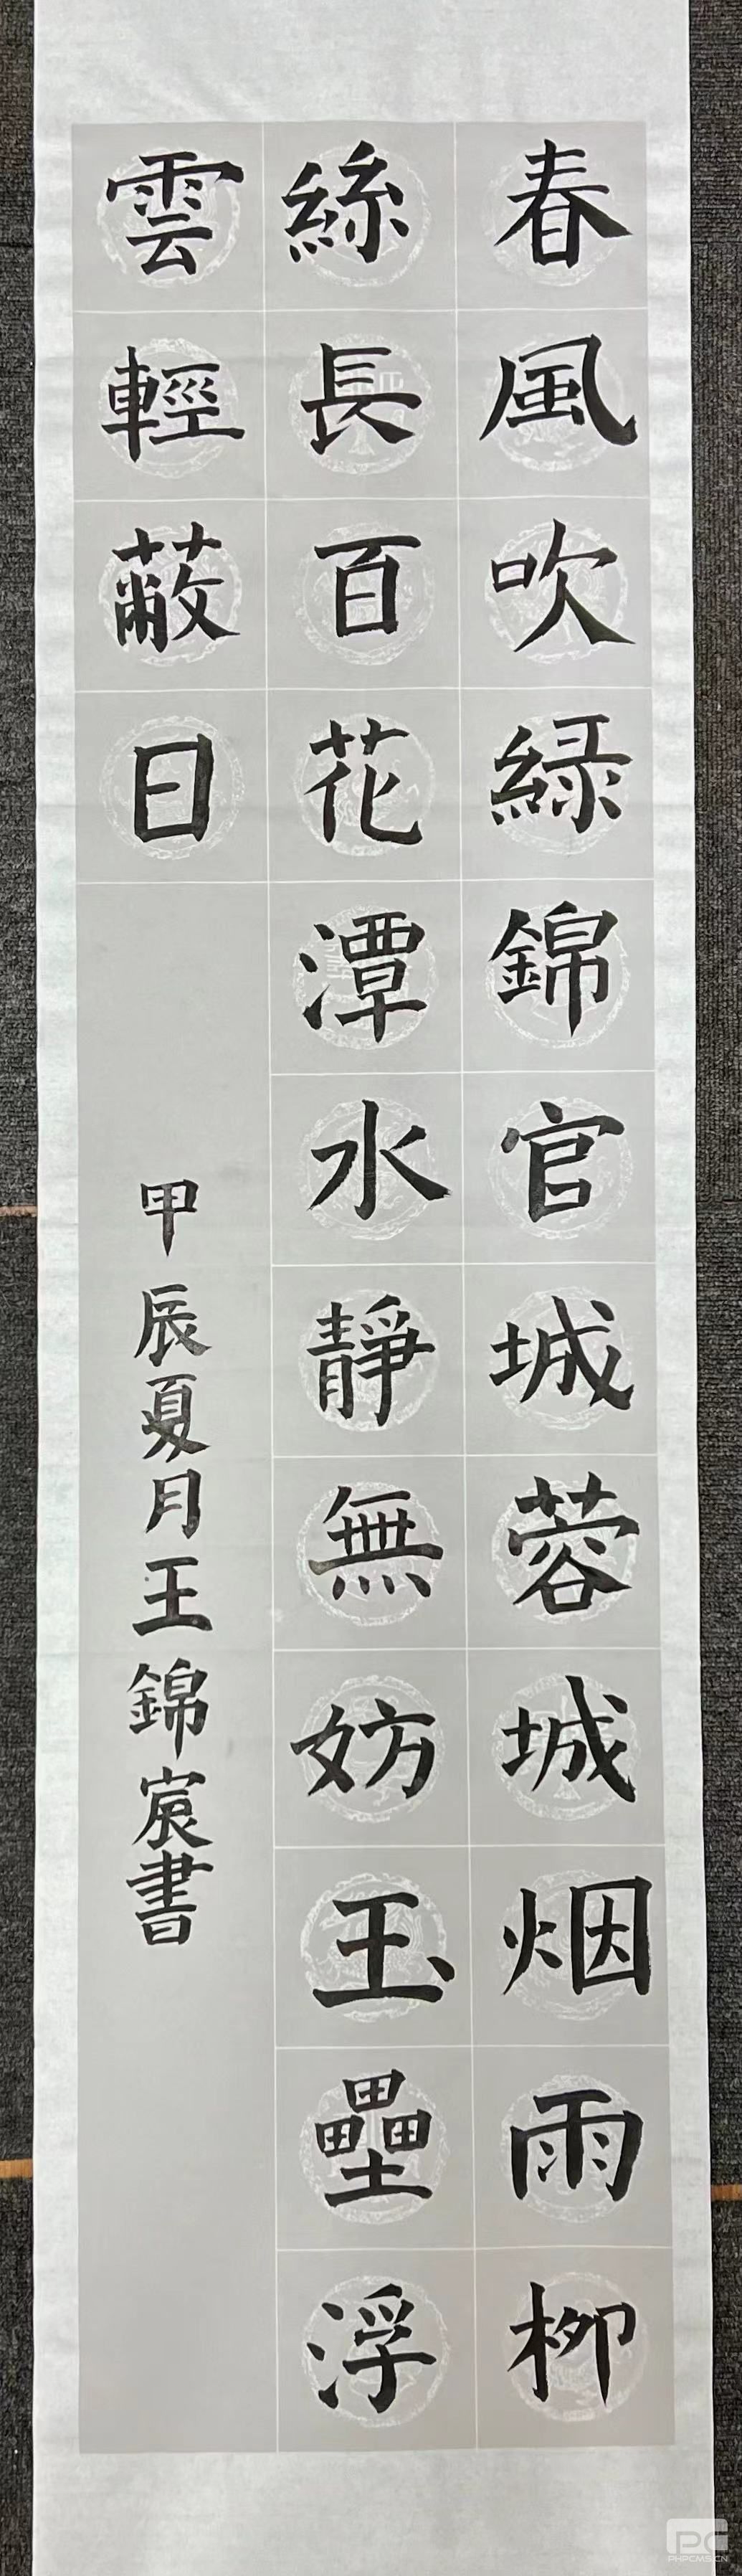 春風吹緑錦官城蓉城烟雨柳
絲長百花潭水靜無妨玉壘浮
雲輕蔽日
甲辰夏月王錦宸書
PHPCMS.CN